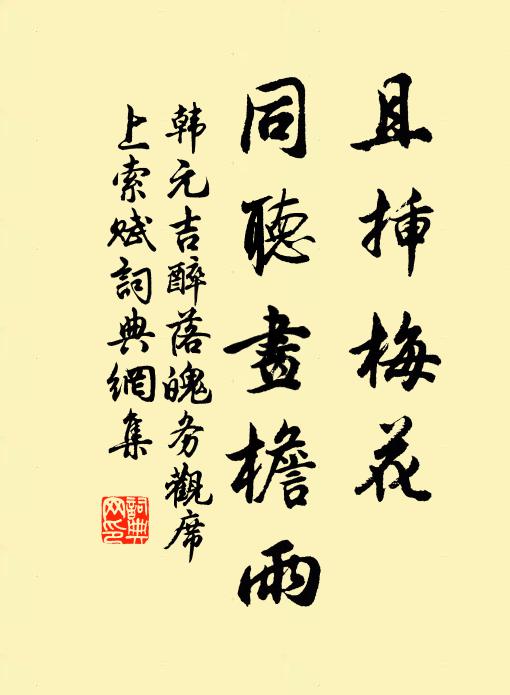 且挿梅花
同聽畫檐雨
韩元吉醉落魄务觀席
上索赋詞典網集
詞典网印